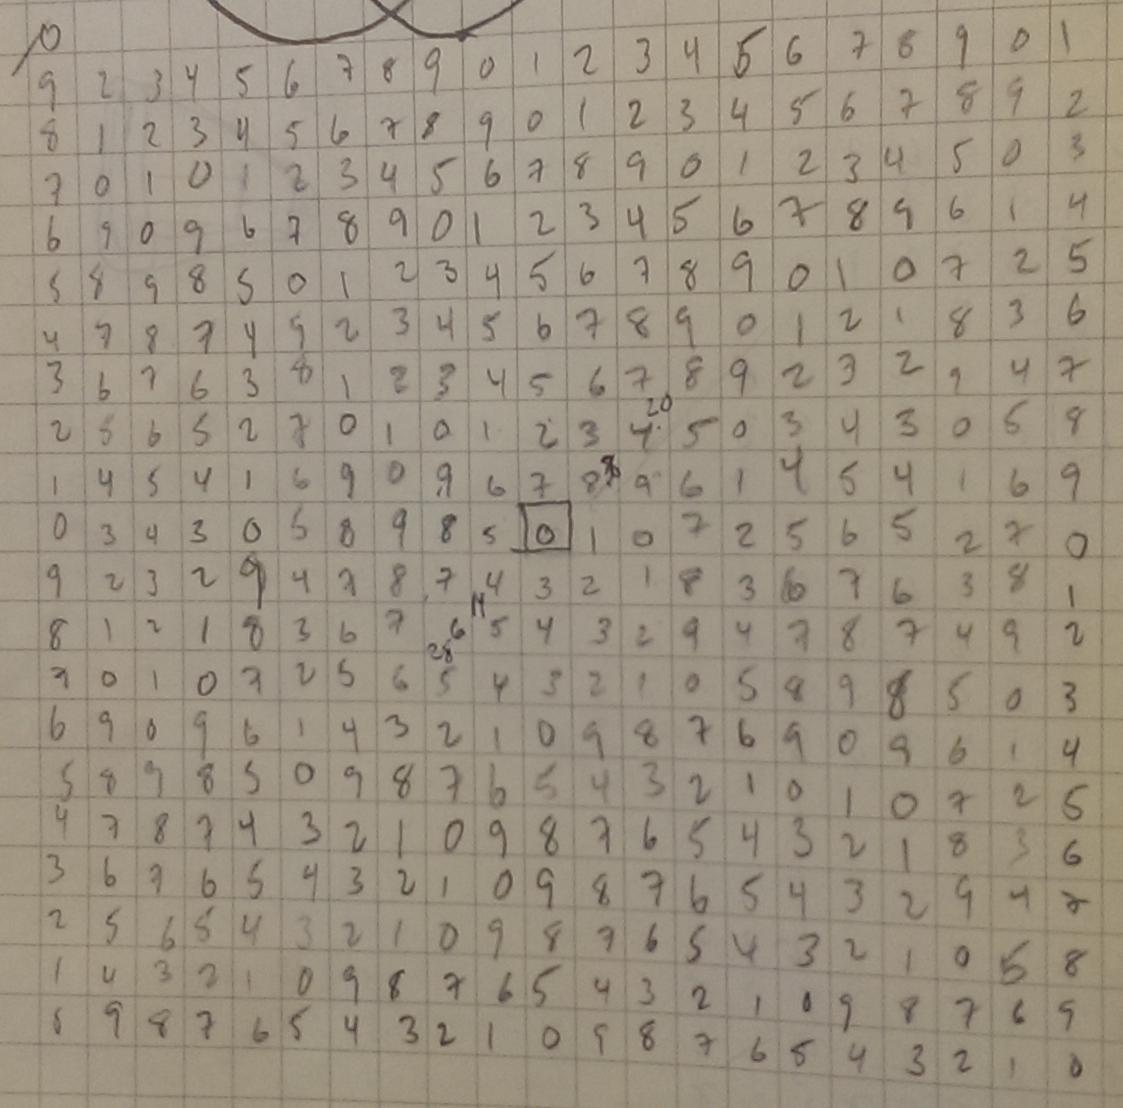 0
9 2 3 4 5 6 7 8 9 0 1 2 3 4 5 6 7 8 9 0 1
8 1 2 3 4 5 6 7 8 9 0 1 2 3 4 5 6 7 8 9 2
7 0 1 0 1 2 3 4 5 6 7 8 9 0 1 2 3 4 5 0 3
6 9 0 9 6 7 8 9 0 1 2 3 4 5 6 7 8 9 6 1 4
5 8 9 8 5 0 1 2 3 4 5 6 7 8 9 0 1 0 7 2 5
4 7 8 7 4 9 2 3 4 5 6 7 8 9 0 1 2 1 8 3 6
3 6 7 6 3 8 1 2 3 4 5 6 7 8 9 2 3 2 9 4 7
20
2 5 6 5 2 7 0 1 0 1 2 3 4 5 0 3 4 3 0 5 8
1 4 5 4 1 6 9 0 9 6 7 8 9 6 1 4 5 4 1 6 9
0 3 4 3 0 5 8 9 8 5 0 1 0 7 2 5 6 5 2 7 0
9 2 3 2 9 4 7 8 7 4 3 2 1 8 3 6 7 6 3 8 1
14
8 1 2 1 8 3 6 7 6 5 4 3 2 9 4 7 8 7 4 9 2
28
7 0 1 0 7 2 5 6 5 4 3 2 1 0 5 8 9 8 5 0 3
6 9 0 9 6 1 4 3 2 1 0 9 8 7 6 9 0 9 6 1 4
5 8 9 8 5 0 9 8 7 6 5 4 3 2 1 0 1 0 7 2 5
4 7 8 7 4 3 2 1 0 9 8 7 6 5 4 3 2 1 8 3 6
3 6 7 6 5 4 3 2 1 0 9 8 7 6 5 4 3 2 9 4 7
2 5 6 5 4 3 2 1 0 9 8 7 6 5 4 3 2 1 0 5 8
1 4 3 2 1 0 9 8 7 6 5 4 3 2 1 0 9 8 7 6 9
9 8 7 6 5 4 3 2 1 0 9 8 7 6 5 4 3 2 1 0